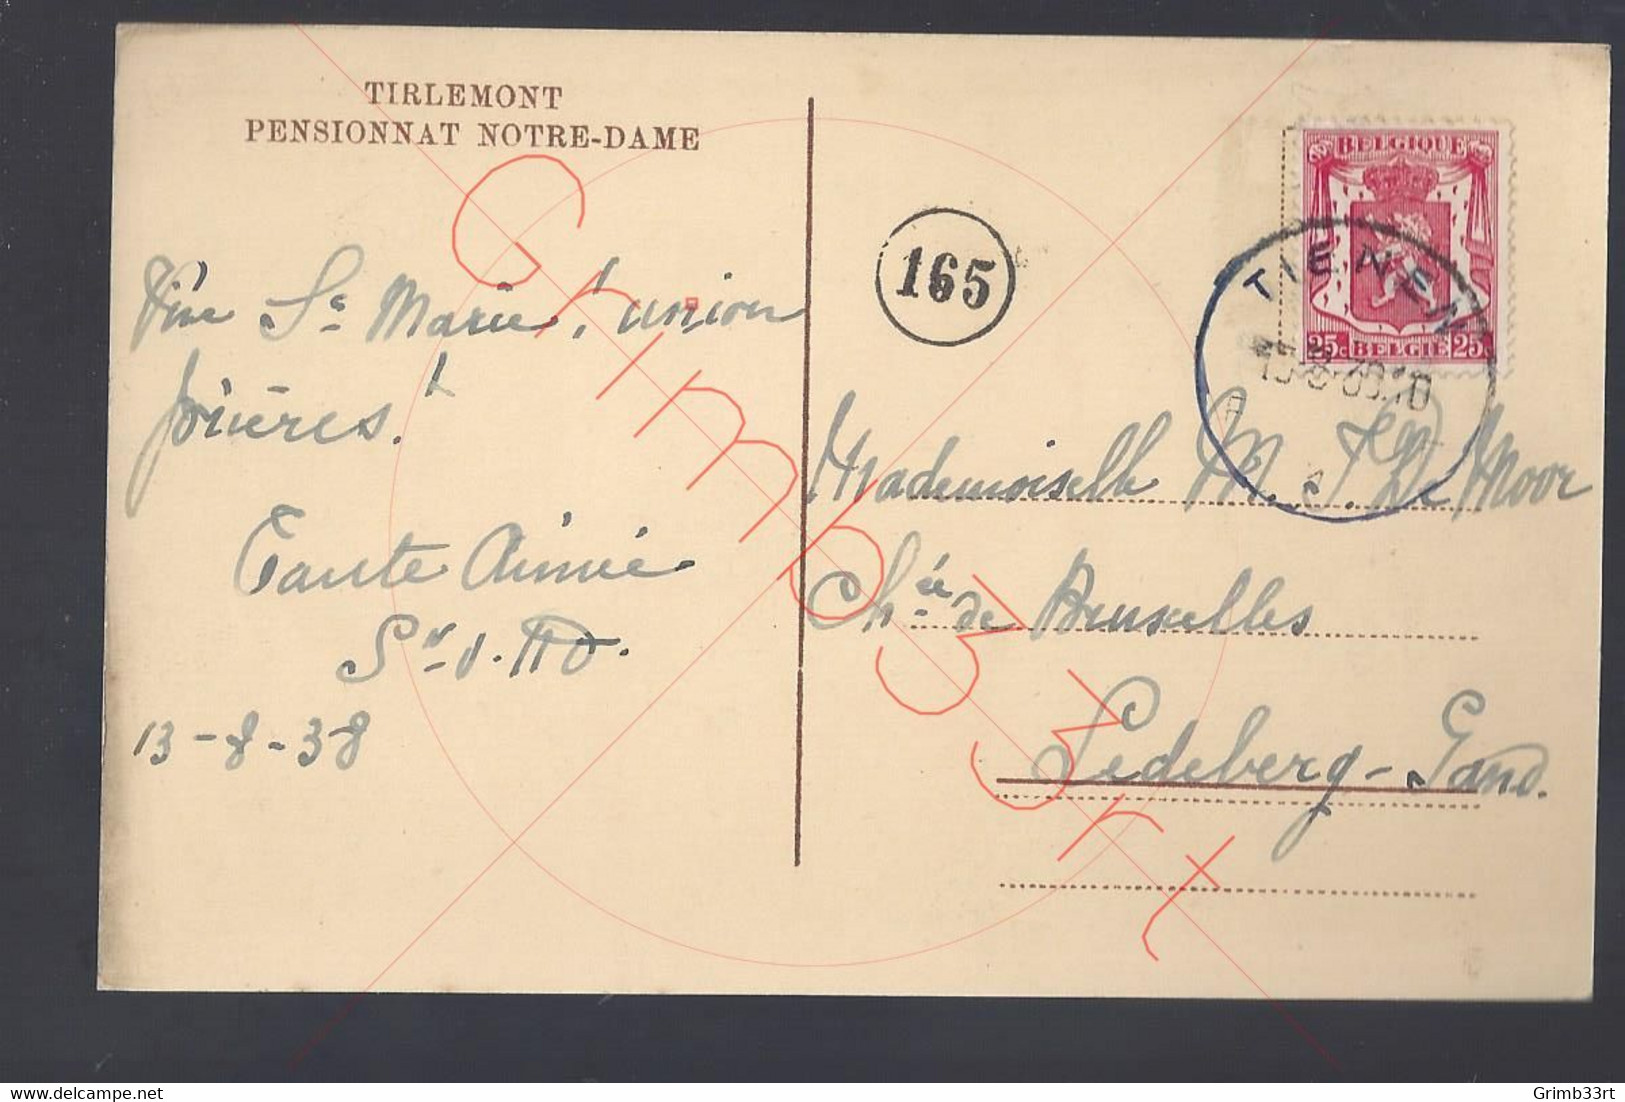 TIRLEMONT
PENSIONNAT NOTRE-DAME
Vive Ste Marie! union
prières!
Tante Aimée
Sr d. ND.
13-8-38
165
BELGIQUE
25c BELGIE 25c
TIENEN
Mademoiselle M. T. De Moor
Chée de Bruxelles
Ledeberg-Gand.
Grimb33rt
delcampe.net
Grimb33rt